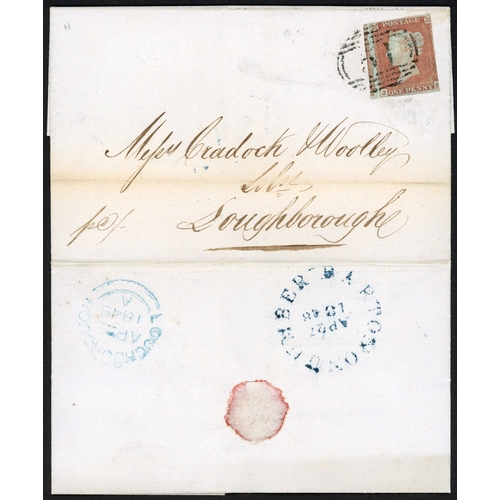 POSTAGE
ONE PENNY
Messrs Cradock & Woolley
Solrs
Loughborough
pd/-
LOUGHBOROUGH
AP
1848
A
BARTON ON HUMBER
AP 27
1848